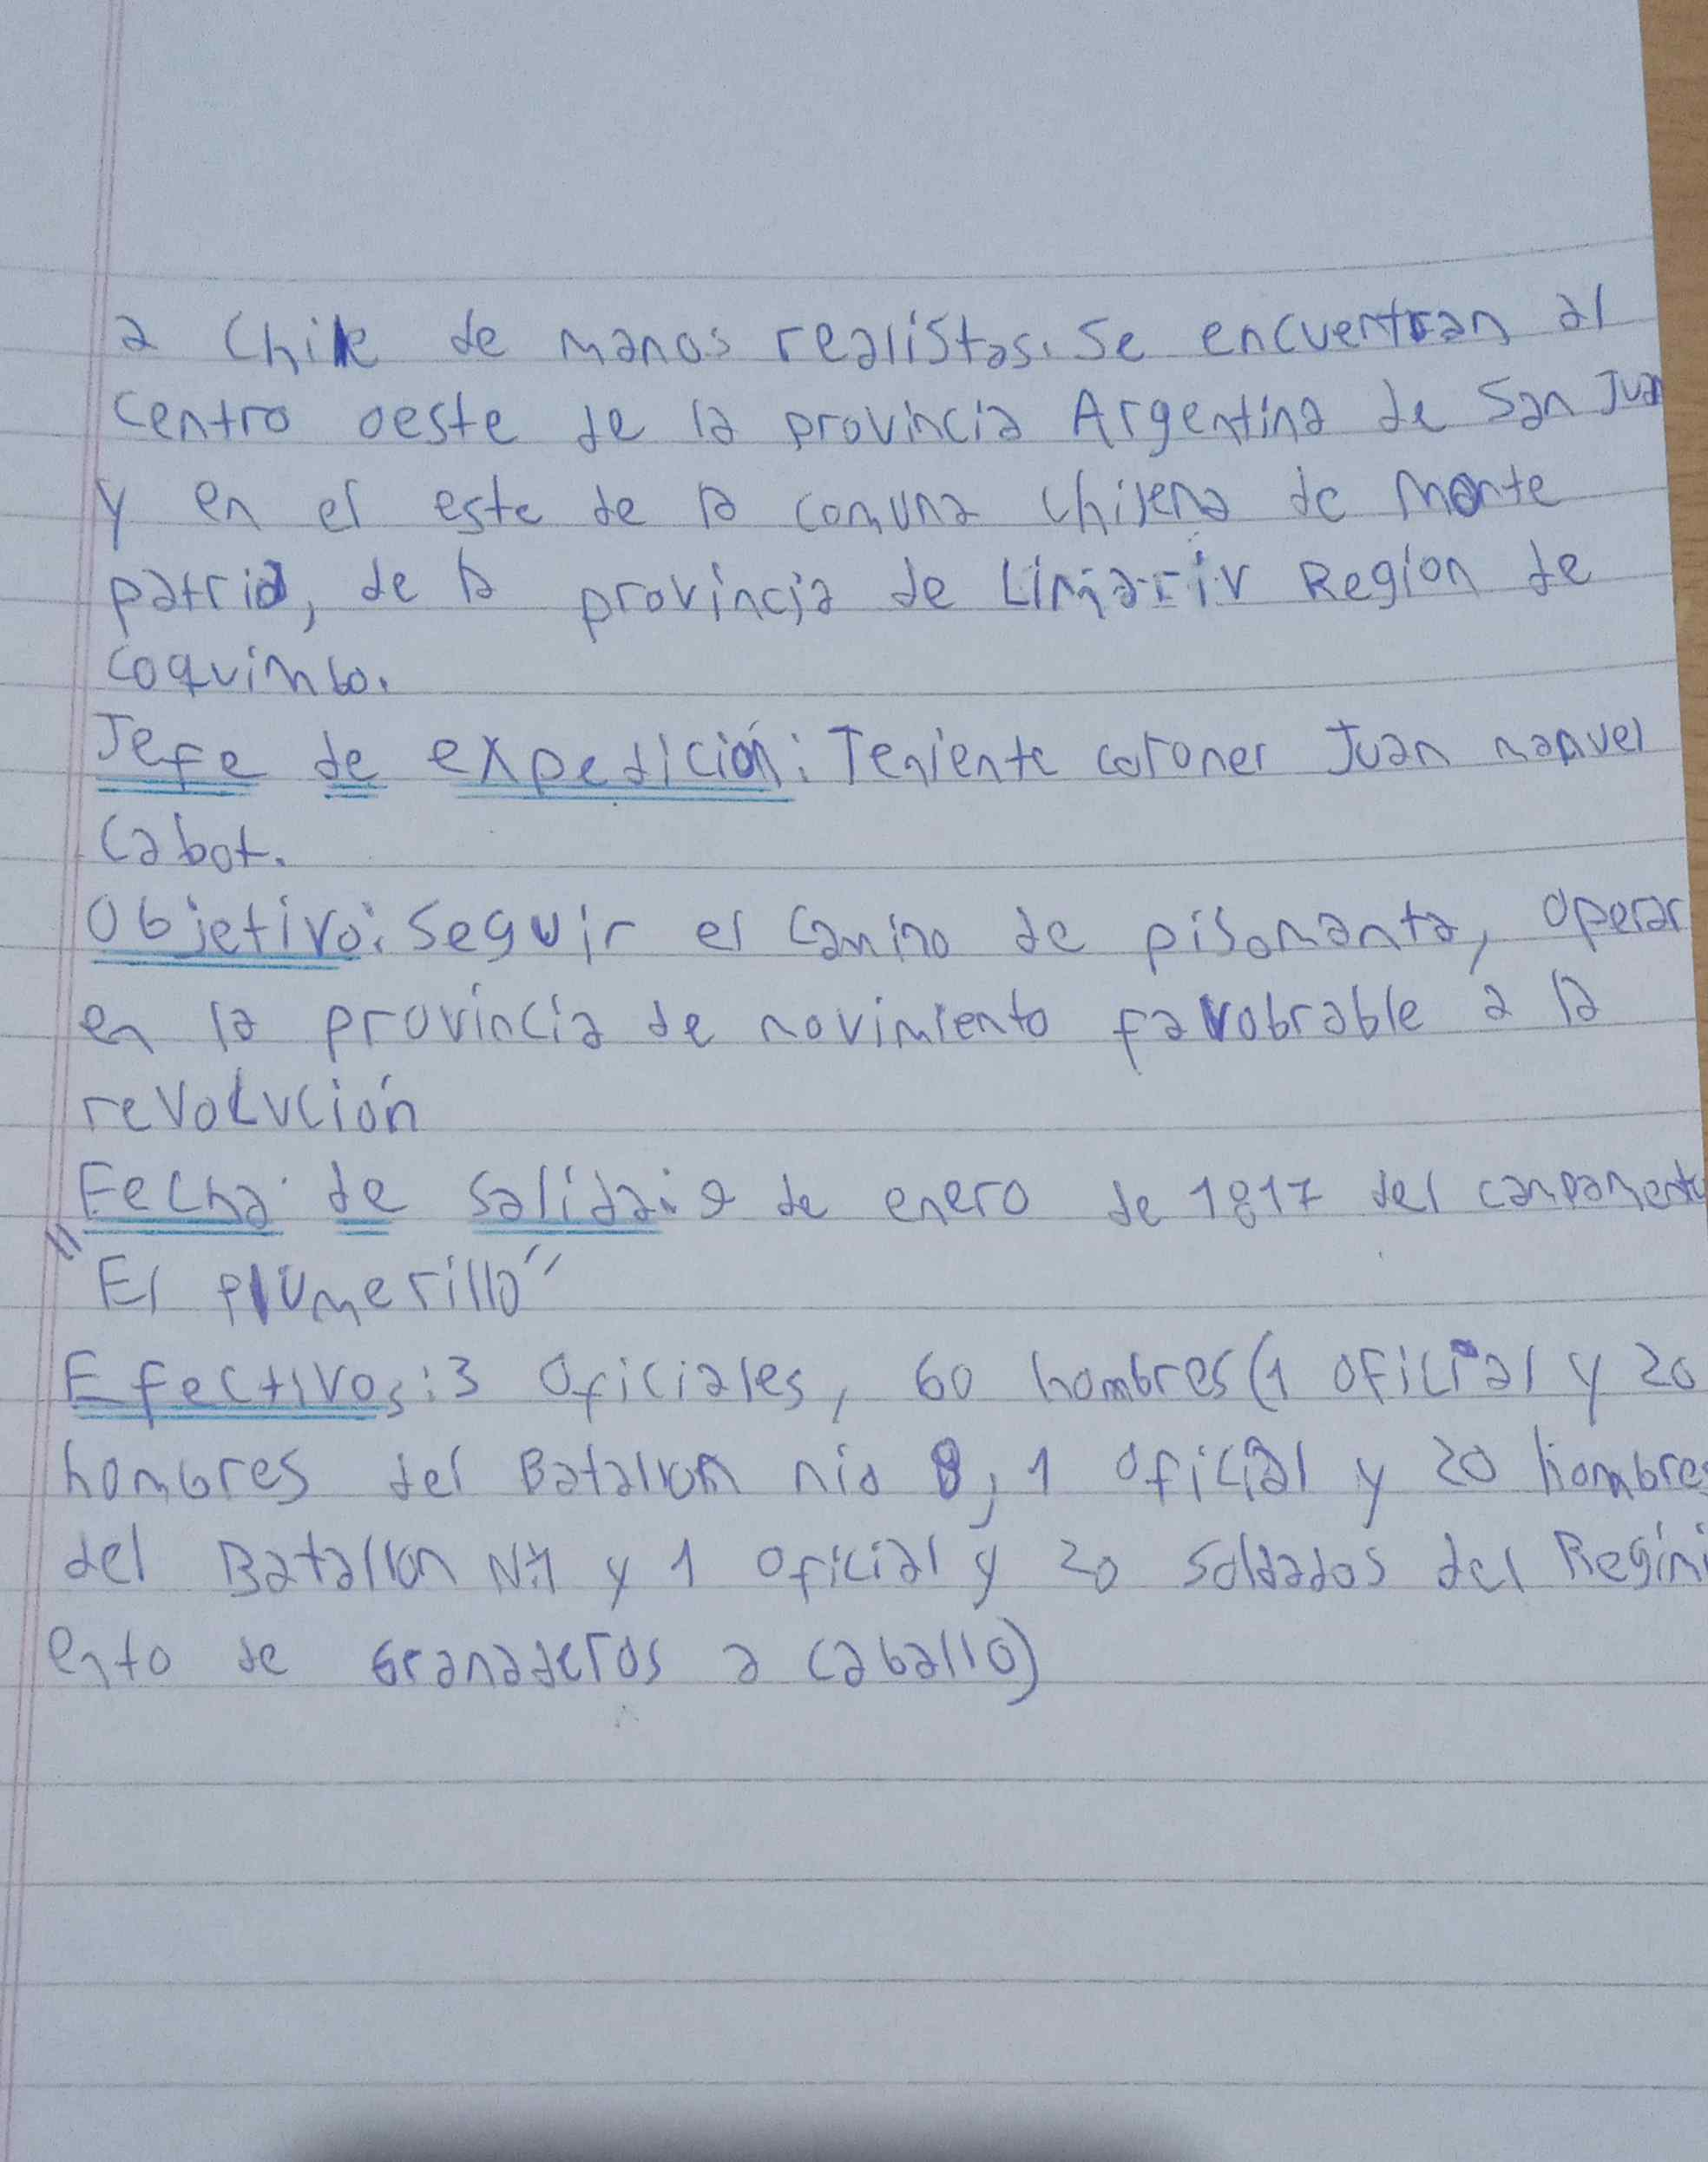 a Chile de manos realistas. Se encuentran al
centro oeste de la provincia Argentina de San Juan
y en el este de la comuna chilena de Monte
patria, de la provincia de Limariv Region de
coquimbo.
Jefe de expedición: Teniente coronel Juan manuel
Cabot.
Objetivo: Seguir el camino de pismanta, operar
en la provincia de movimiento favobrable a la
revolución
Fecha de salida: 9 de enero de 1817 del campamento
"El plumerillo"
Efectivos: 3 Oficiales, 60 hombres (1 oficial y 20
hombres del Batallon nio 8, 1 oficial y 20 hombres
del Batallon N:1 y 1 oficial y 20 soldados del Regimi
ento de Granaderos a caballo)